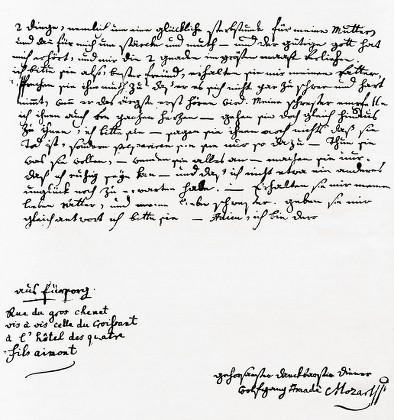 2 dinge, nemlich um eine glückliche sterbstunde für meine Mutter,
und dan für mich um stärcke und muth — und der gütige gott hat
mich erhört, und mir die 2 gnaden im grösten maaße verliehen.
ich bitte sie also, bester freünd, erhalten sie mir meinen vatter,
sprechen sie ihm muth zu daß er es sich nicht gar zu schwer und hart
nimmt, wen er das ärgste erst hören wird. Meine schwester empfehle
ich ihnen auch von ganzen herzen — gehen sie doch gleich hinaus
zu ihnen, ich bitte sie — sagen sie ihnen noch nicht daß sie
Tod ist, sondern prepariren sie sie nur so dazu — Thun sie
was sie wollen, — wenden sie alles an — machen sie nur
daß ich ruhig seyn kan — und daß ich nicht etwa ein anderes
unglück noch zu erwarten habe. — Erhalten sie mir meinen
lieben vatter, und meine liebe schwester. geben sie mir
gleich antwort ich bitte sie — Adieu, ich bin dero
aus fürsorg.
Rue du gros chenet
vis à vis celle du Croissant
à l'hôtel des quatre
fils aimont
gehorsamster danckbarster diener
Wolfgang Amadè Mozart